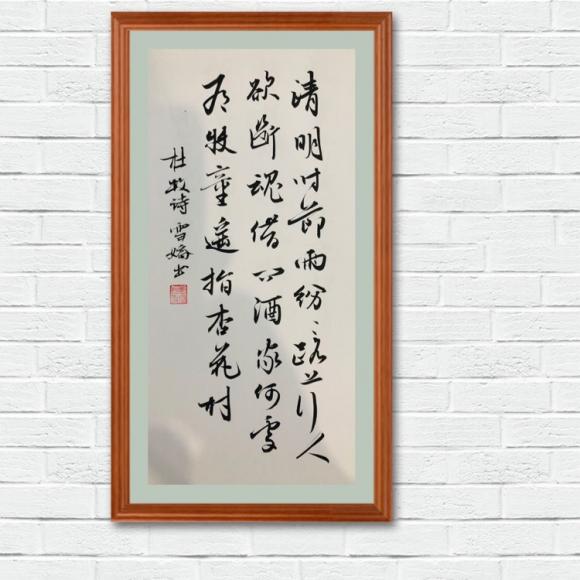 清明时節雨紛〻路上行人
欲斷魂借问酒家何處
有牧童遥指杏花村
杜牧诗雪书